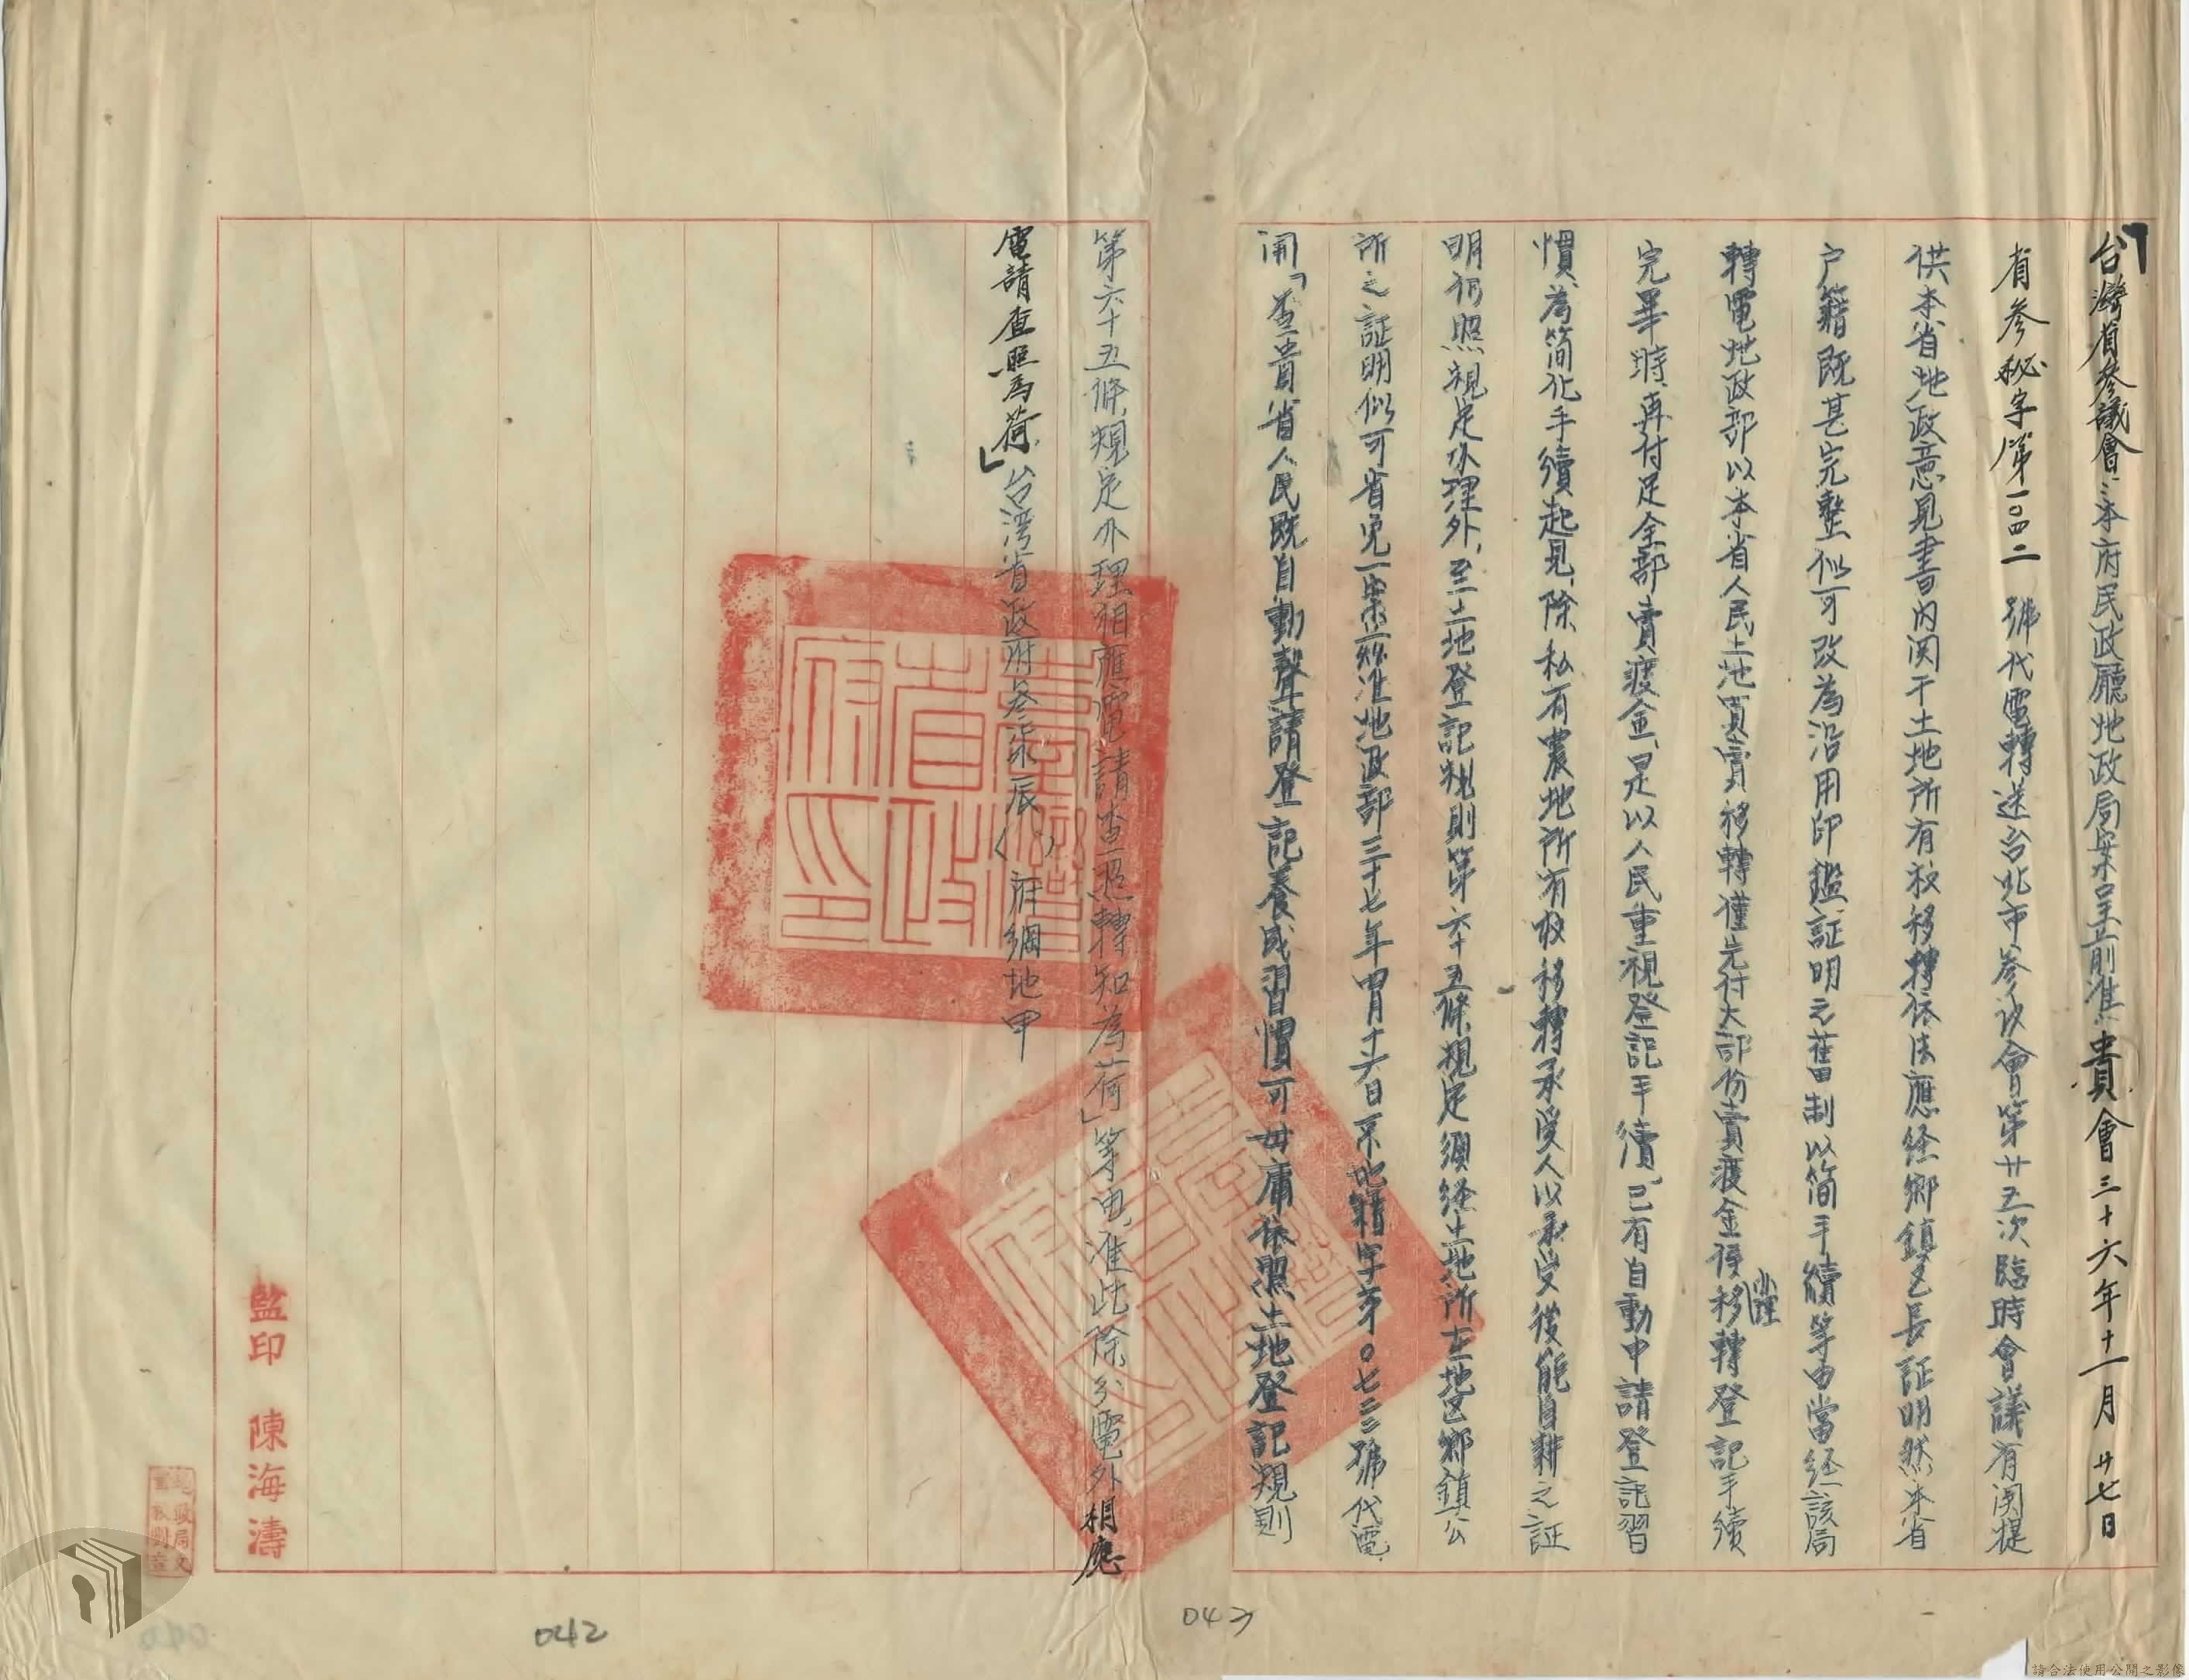 台灣省參議會：本府民政廳地政局案呈前准貴會三十六年十一月廿七日
省參秘字第一〇四二號代電轉送台北市參议會第廿五次臨時會議有関提
供本省地政意見書内関于土地所有权移轉依法應経鄉鎮区長証明然本省
户籍既甚完整似可改為沿用印鑑証明之舊制以简手續等由當経該局
轉電地政部以本省人民土地買賣移轉僅先付大部份賣渡金俟办理移轉登記手續
完畢時再付足全部賣渡金是以人民重視登記手續已有自動申請登記習
慣為简化手續起見、除私有農地所有权移轉承受人以承受後能自耕之証
明仍照規定办理外、至土地登記規則第六十五條規定須経土地所在地区鄉鎮公
所之証明似可省免一案茲准地政部三十七年四月十六日京地籍字第〇七三三號代電
開「查貴省人民既自動聲請登記養成習慣可毋庸依照土地登記規則
第六十五條規定办理相應電請查照轉知為荷」等由准此除分電外相應
電請查照為荷」台湾省政府叁柒辰（）府綱地甲
臺灣省政府印
臺灣省政府印
監印 陳海濤
042
043
請合法使用公開之影像